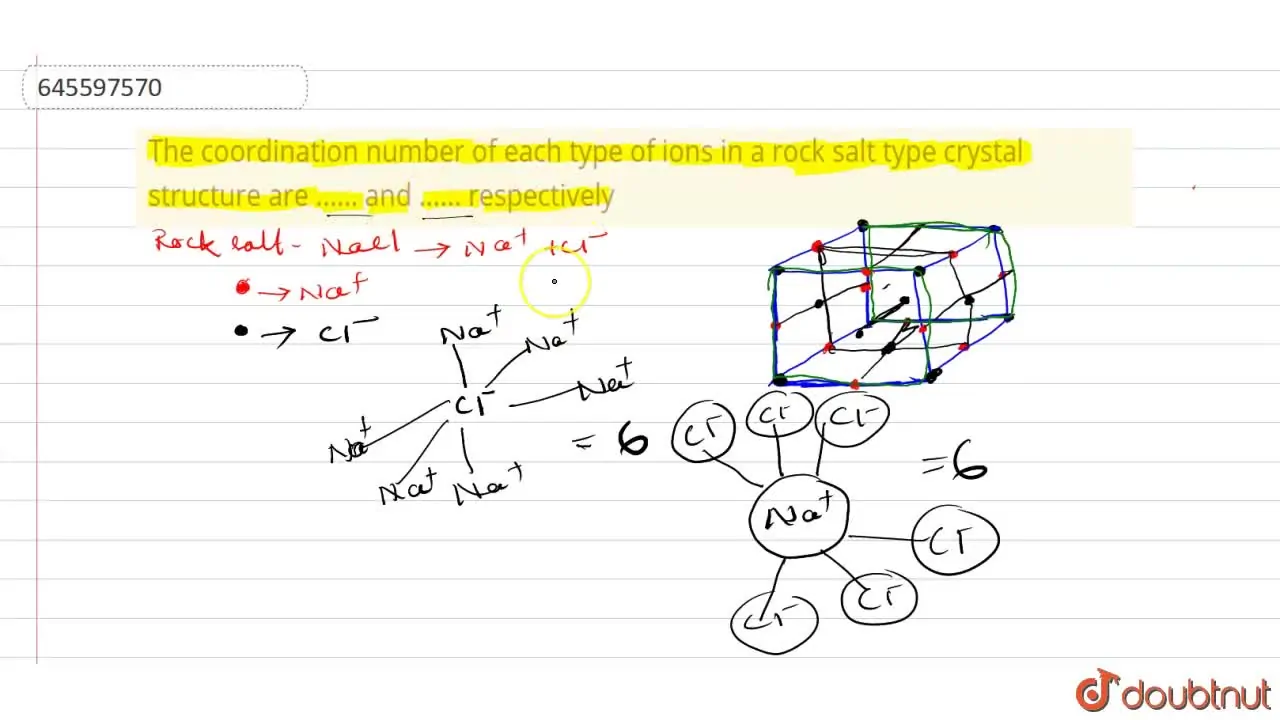 645597570
The coordination number of each type of ions in a rock salt type crystal
structure are ...... and ...... respectively
Rock salt - NaCl → Na⁺ + Cl⁻
● → Na⁺
● → Cl⁻
Na⁺
Na⁺
Na⁺
Cl⁻
Na⁺
Na⁺ Na⁺
= 6
Cl⁻ Cl⁻ Cl⁻
= 6
Na⁺
Cl⁻
Cl⁻
Cl⁻
doubtnut